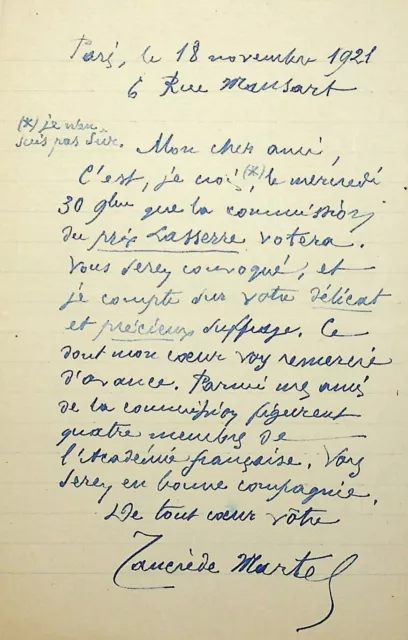 Paris, le 18 novembre 1921
6 Rue Mansart
(*) je n'en
suis pas sûr.
Mon cher ami,
C'est, je crois (*), le mercredi
30 9bre que la commission
du prix Lasserre votera.
Vous serez convoqué, et
je compte sur votre délicat
et précieux suffrage. Ce
dont mon cœur vous remercie
d'avance. Parmi mes amis
de la commission figurent
quatre membres de
l'Académie française. Vous
serez en bonne compagnie.
De tout cœur vôtre
Tancrède Martel